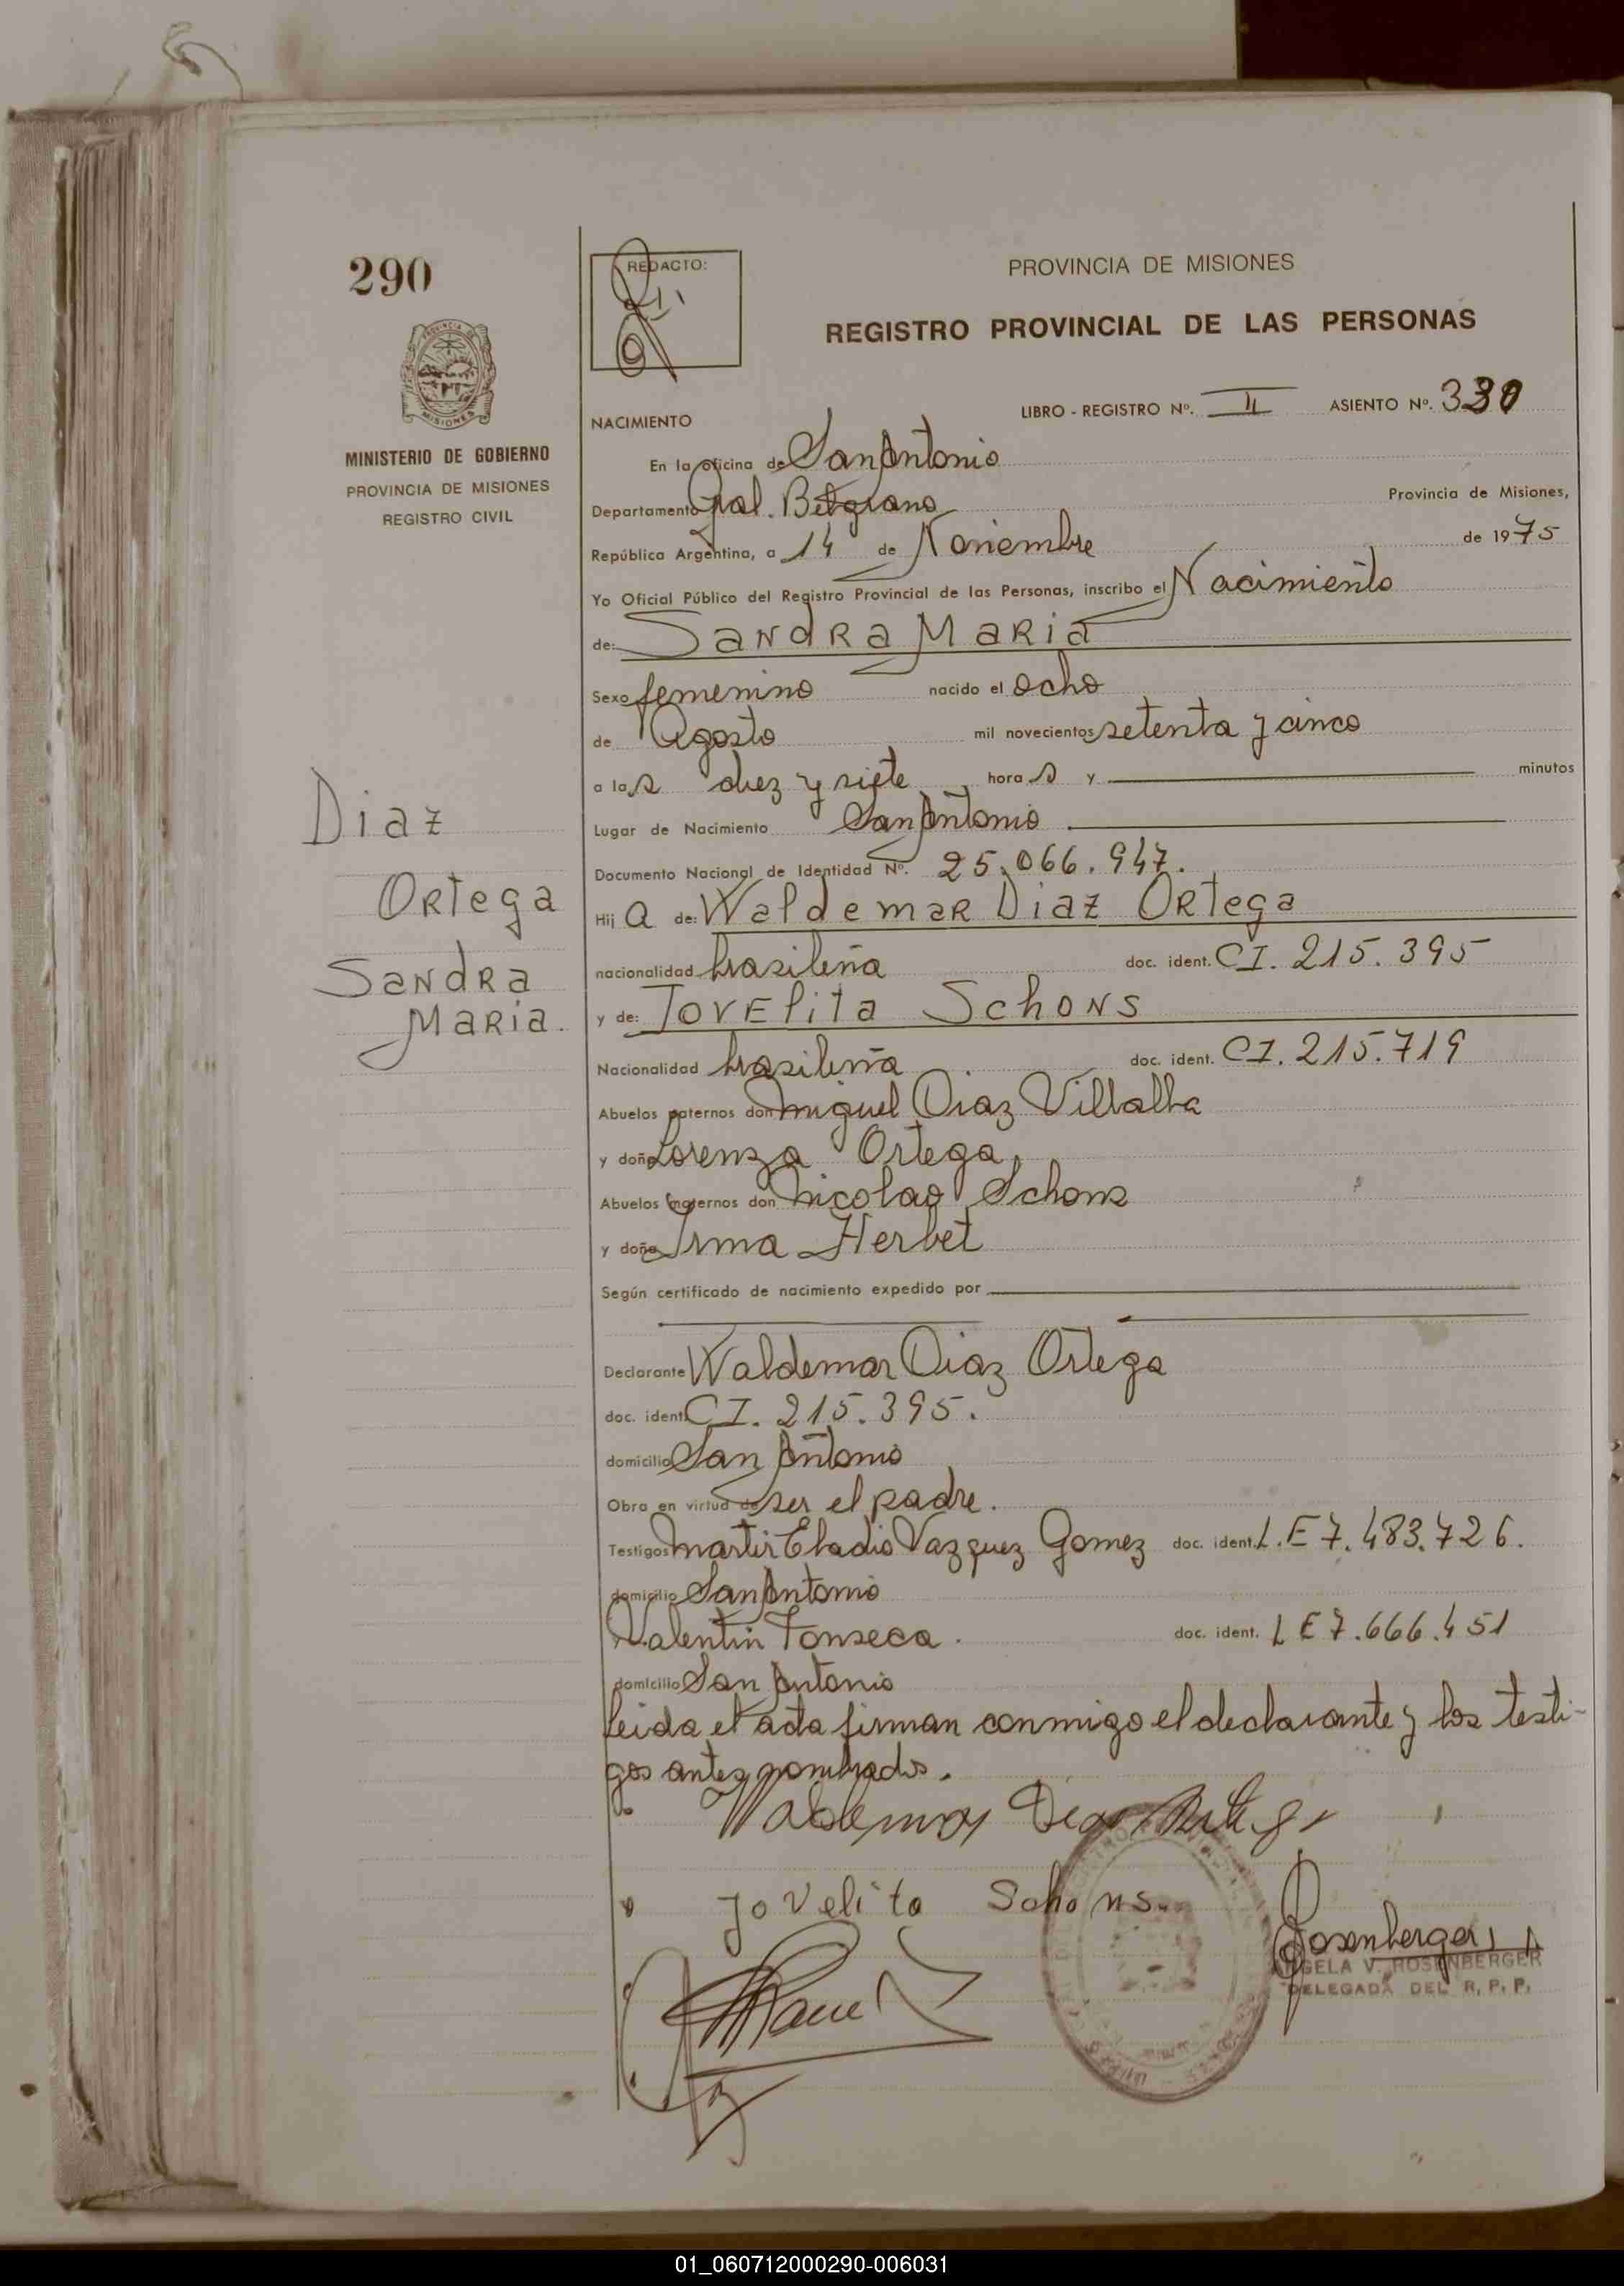 290
REDACTO:
PROVINCIA DE MISIONES
REGISTRO PROVINCIAL DE LAS PERSONAS
MISIONES
MINISTERIO DE GOBIERNO
PROVINCIA DE MISIONES
REGISTRO CIVIL
LIBRO - REGISTRO Nº. II ASIENTO Nº. 330
NACIMIENTO
En la oficina de San Antonio
Departamento Gral. Belgrano Provincia de Misiones,
República Argentina, a 14 de Noviembre de 1975
Yo Oficial Público del Registro Provincial de las Personas, inscribo el Nacimiento
de: Sandra Maria
Sexo femenino nacido el ocho
de Agosto mil novecientos setenta y cinco
a las diez y siete horas y minutos
Lugar de Nacimiento San Antonio
Documento Nacional de Identidad Nº. 25.066.947.
Hija de: Waldemar Diaz Ortega
nacionalidad brasileña doc. ident. CI. 215.395
y de: Jovelita Schons
Nacionalidad brasileña doc. ident. CI. 215.719
Abuelos paternos don Miguel Diaz Villalba
y doña Lorenza Ortega
Abuelos maternos don Nicolao Schons
y doña Irma Herbet
Según certificado de nacimiento expedido por
Declarante Waldemar Diaz Ortega
doc. ident. CI. 215.395.
domicilio San Antonio
Obra en virtud de ser el padre.
Testigos Martir Eladio Vazquez Gomez doc. ident. L.E 7.483.726.
domicilio San Antonio
Valentin Fonseca. doc. ident. LE 7.666.451
domicilio San Antonio
leida el acta firman conmigo el declarante y los testi-
gos antes nombrados.
Diaz
Ortega
Sandra
Maria.
Waldemar Diaz Ortega
Jovelita Schons
Rosenberger
ANGELA V. ROSENBERGER
DELEGADA DEL R. P. P.
01_060712000290-006031